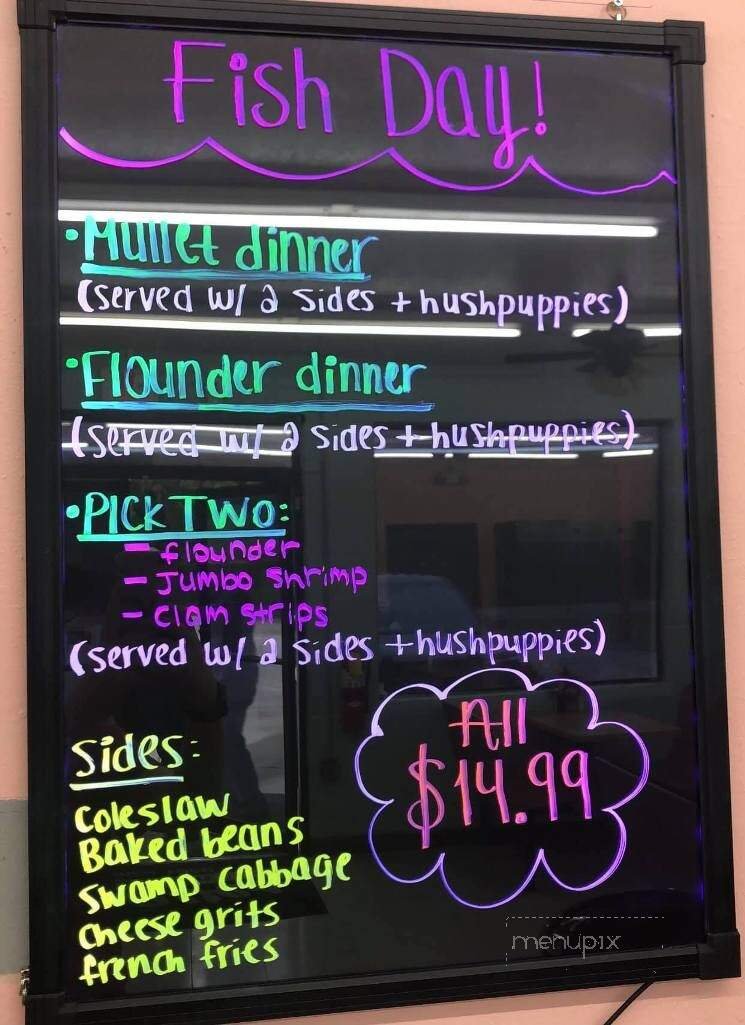 Fish Day!
•Mullet dinner
(served w/ 2 sides + hushpuppies)
•Flounder dinner
(served w/ 2 sides + hushpuppies)
•PICK TWO:
- flounder
- Jumbo shrimp
- clam strips
(served w/ 2 sides + hushpuppies)
Sides:
Coleslaw
Baked beans
Swamp cabbage
cheese grits
french fries
All
$14.99
menupix